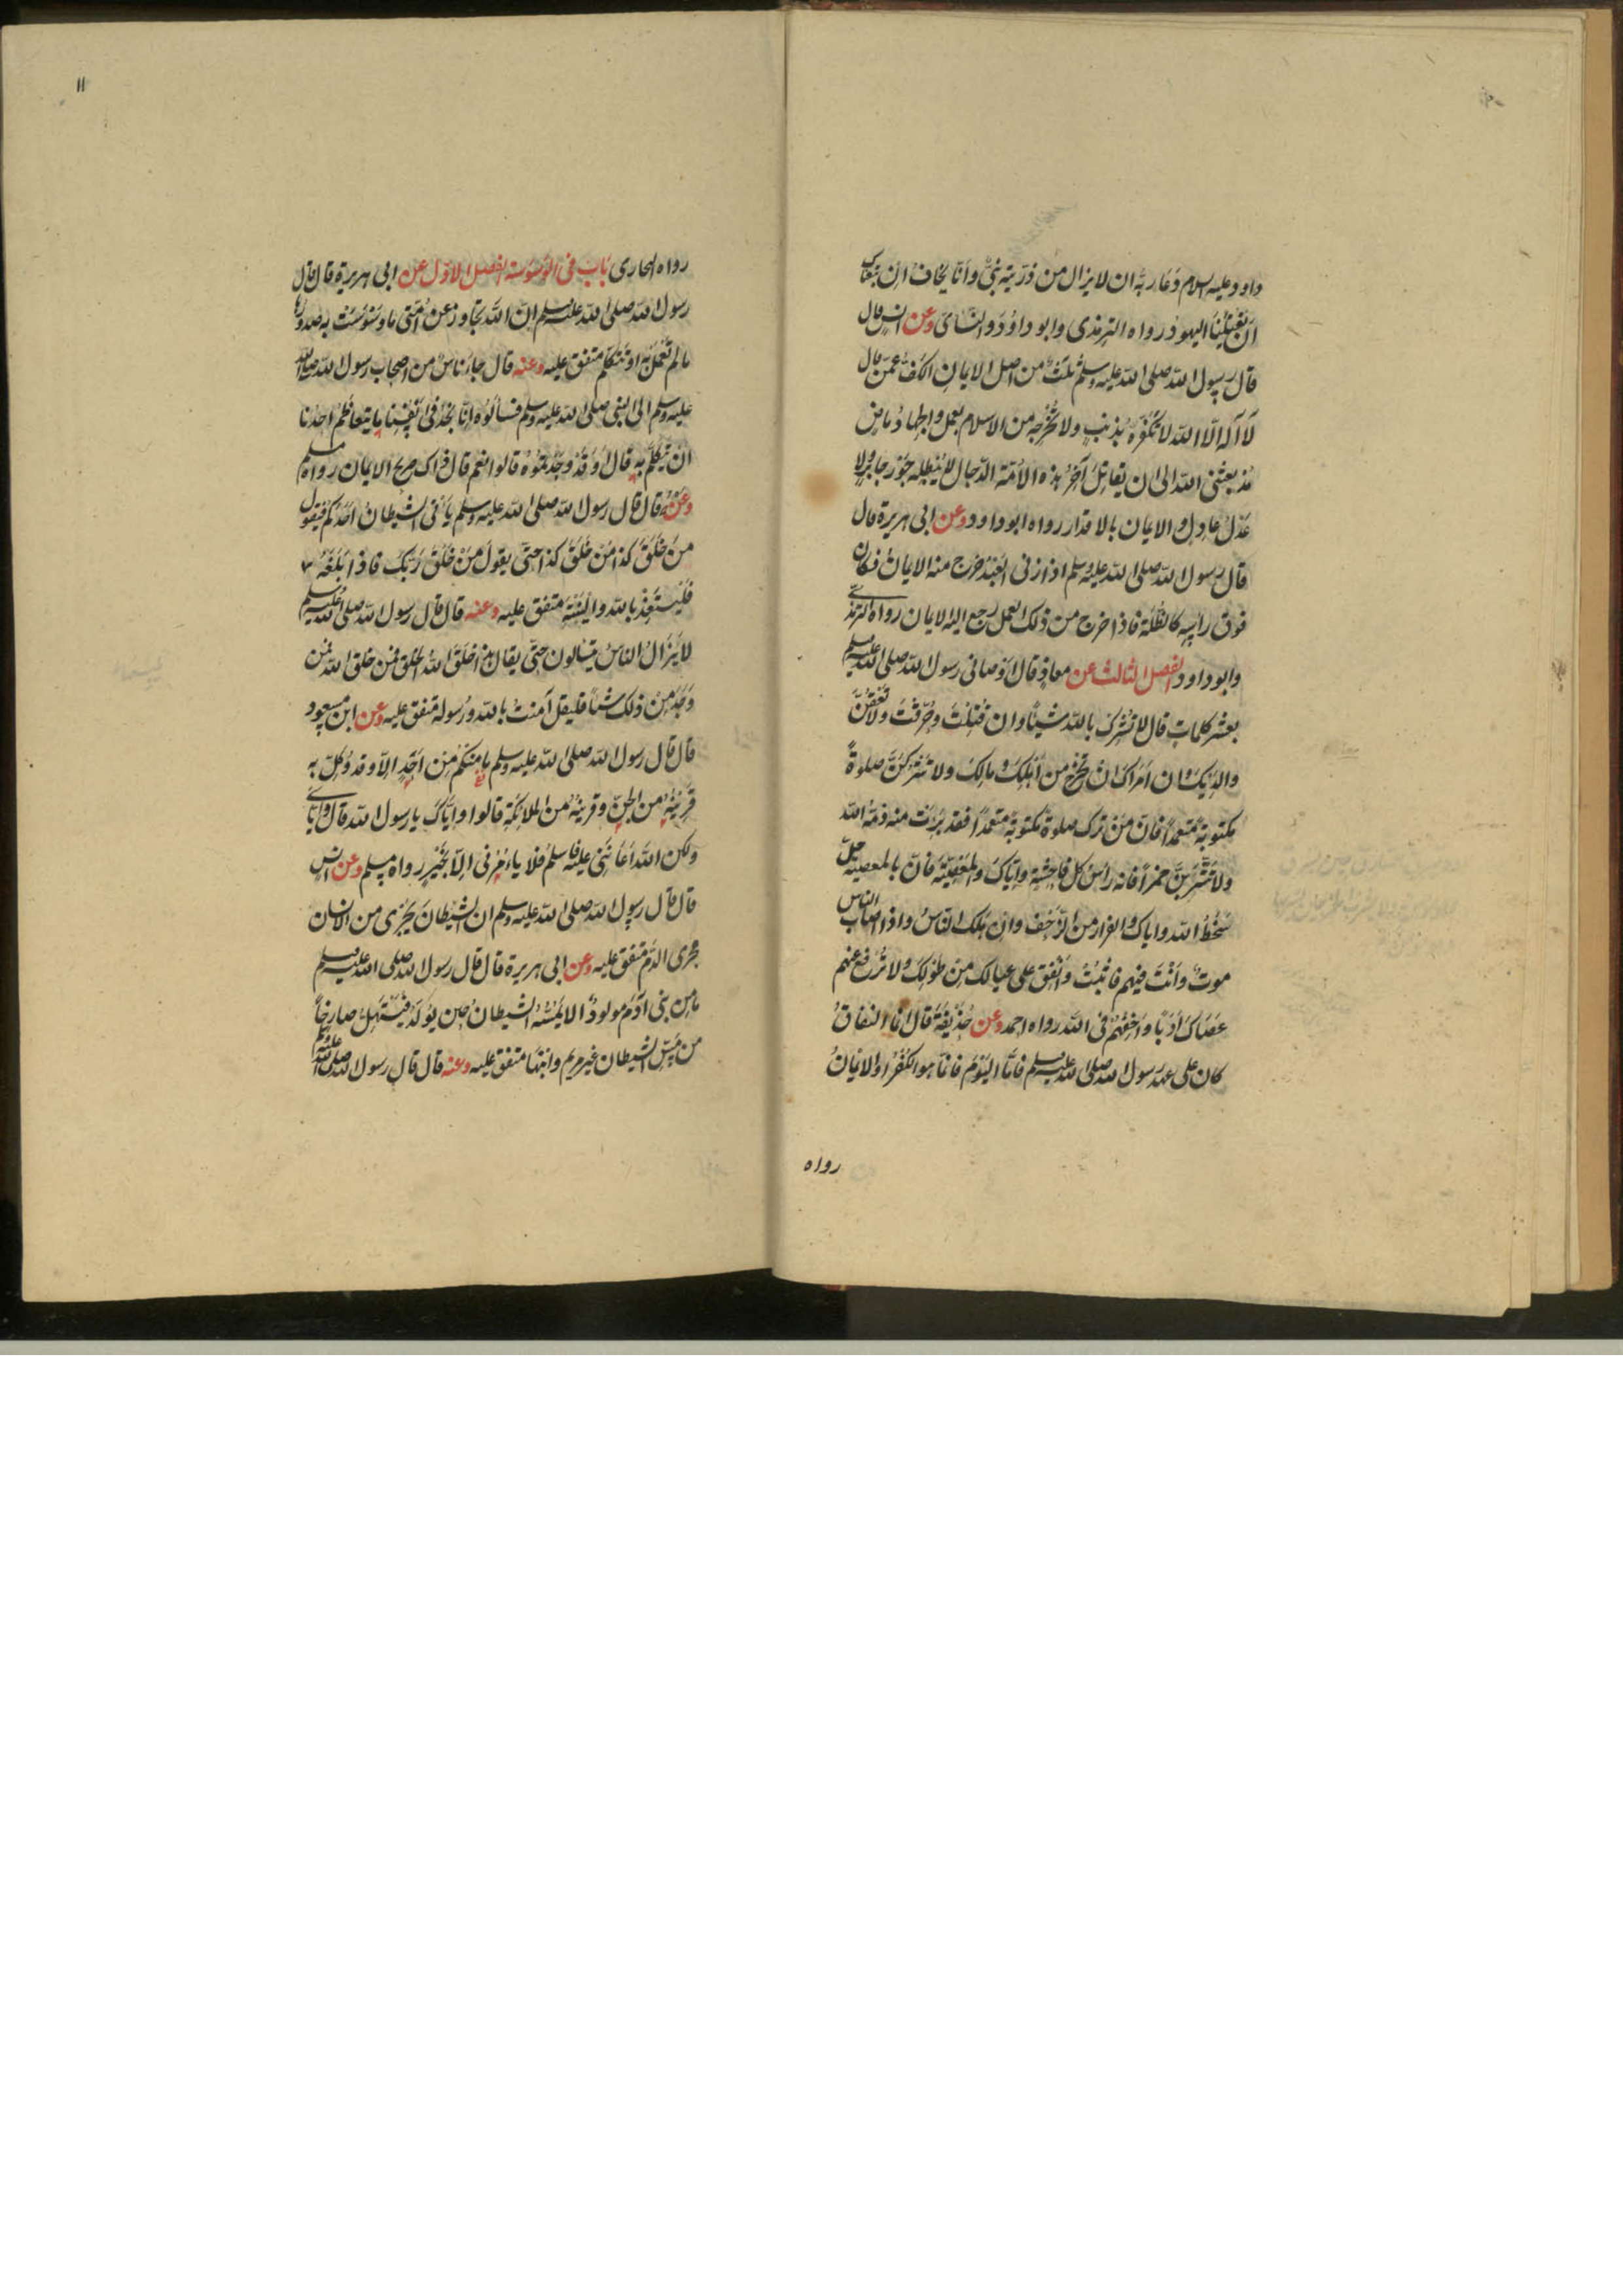 داود عليه السلام دعا ربه ان لا يزال من ذريته نبي وانا نخاف ان تبعناك
ان تقتلنا اليهود رواه الترمذي وابو داود والنسائ وعن انس قال
قال رسول الله صلى الله عليه وسلم ثلث من اصل الايمان الكف عمن قال
لا اله الا الله لا تكفره بذنب ولا تخرجه من الاسلام بعمل والجهاد ماض
مذ بعثني الله الى ان يقاتل آخر هذه الامة الدجال لا يبطله جور جاير ولا
عدل عادل والايمان بالاقدار رواه ابو داود وعن ابي هريرة قال
قال رسول الله صلى الله عليه وسلم اذا زنى العبد خرج منه الايمان فكان
فوق راسه كالظلة فاذا خرج من ذلك العمل رجع اليه الايمان رواه الترمذي
وابو داود الفصل الثالث عن معاذ قال اوصاني رسول الله صلى الله عليه وسلم
بعشر كلمات قال لا تشرك بالله شيئا وان قتلت وحرقت ولا تعقن
والديك وان امراك ان تخرج من اهلك ومالك ولا تتركن صلوة
مكتوبة متعمدا فان من ترك صلوة مكتوبة متعمدا فقد برئت منه ذمة الله
ولا تشربن خمرا فانه راس كل فاحشة واياك والمعصية فان بالمعصية حل
سخط الله واياك والفرار من الزحف وان هلك الناس واذا اصاب الناس
موت وانت فيهم فاثبت وانفق على عيالك من طولك ولا ترفع عنهم
عصاك ادبا واخفهم في الله رواه احمد وعن حذيفة قال انما النفاق
كان على عهد رسول الله صلى الله عليه وسلم فاما اليوم فانما هو الكفر او الايمان
رواه
١١
رواه البخاري باب في الوسوسة الفصل الاول عن ابي هريرة قال قال
رسول الله صلى الله عليه وسلم ان الله تجاوز عن امتي ما وسوست به صدورها
مالم تعمل به او تتكلم متفق عليه وعنه قال جاء ناس من اصحاب رسول الله صلى الله
عليه وسلم الى النبي صلى الله عليه وسلم فسالوه انا نجد في انفسنا ما يتعاظم احدنا
ان يتكلم به قال اوقد وجدتموه قالوا نعم قال ذاك صريح الايمان رواه مسلم
وعنه قال قال رسول الله صلى الله عليه وسلم ياتي الشيطان احدكم فيقول
من خلق كذا من خلق كذا حتى يقول من خلق ربك فاذا بلغه
فليستعذ بالله ولينته متفق عليه وعنه قال قال رسول الله صلى الله عليه وسلم
لا يزال الناس يتسالون حتى يقال هذا خلق الله الخلق فمن خلق الله فمن
وجد من ذلك شيئا فليقل آمنت بالله ورسوله متفق عليه وعن ابن مسعود
قال قال رسول الله صلى الله عليه وسلم ما منكم من احد الا وقد وكل به
قرينه من الجن وقرينه من الملائكة قالوا واياك يا رسول الله قال واياي
ولكن الله اعانني عليه فاسلم فلا يامرني الا بخير رواه مسلم وعن انس
قال قال رسول الله صلى الله عليه وسلم ان الشيطان يجرى من الانسان
مجرى الدم متفق عليه وعن ابي هريرة قال قال رسول الله صلى الله عليه وسلم
ما من بني آدم مولود الا يمسه الشيطان حين يولد فيستهل صارخا
من مس الشيطان غير مريم وابنها متفق عليه وعنه قال قال رسول الله صلى الله عليه وسلم